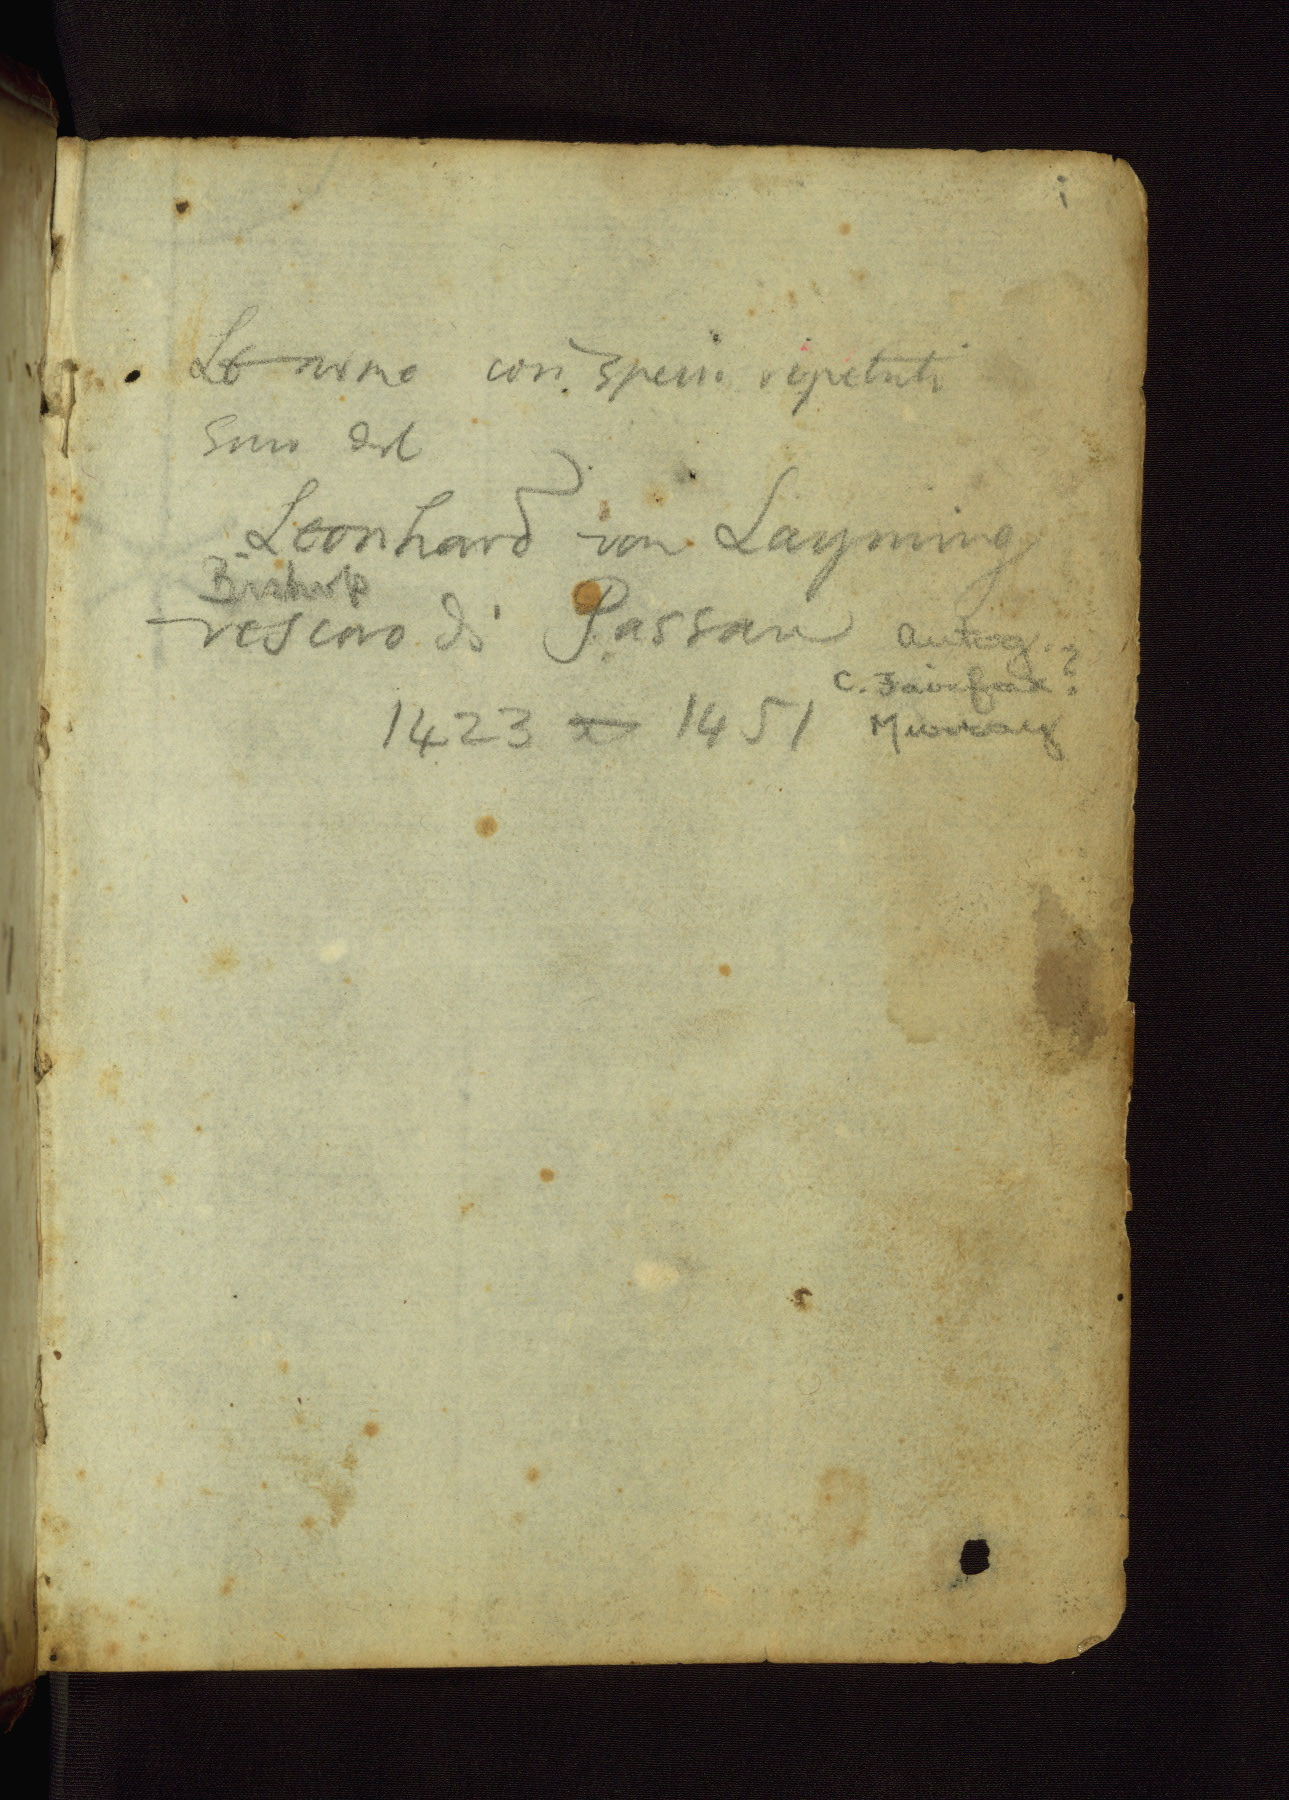 i
Le arme così spesso ripetute
sono del
Leonhard von Layming
Bishop
vescovo di Passau autog. ?
C. Fairfax
1423 – 1451 Murray